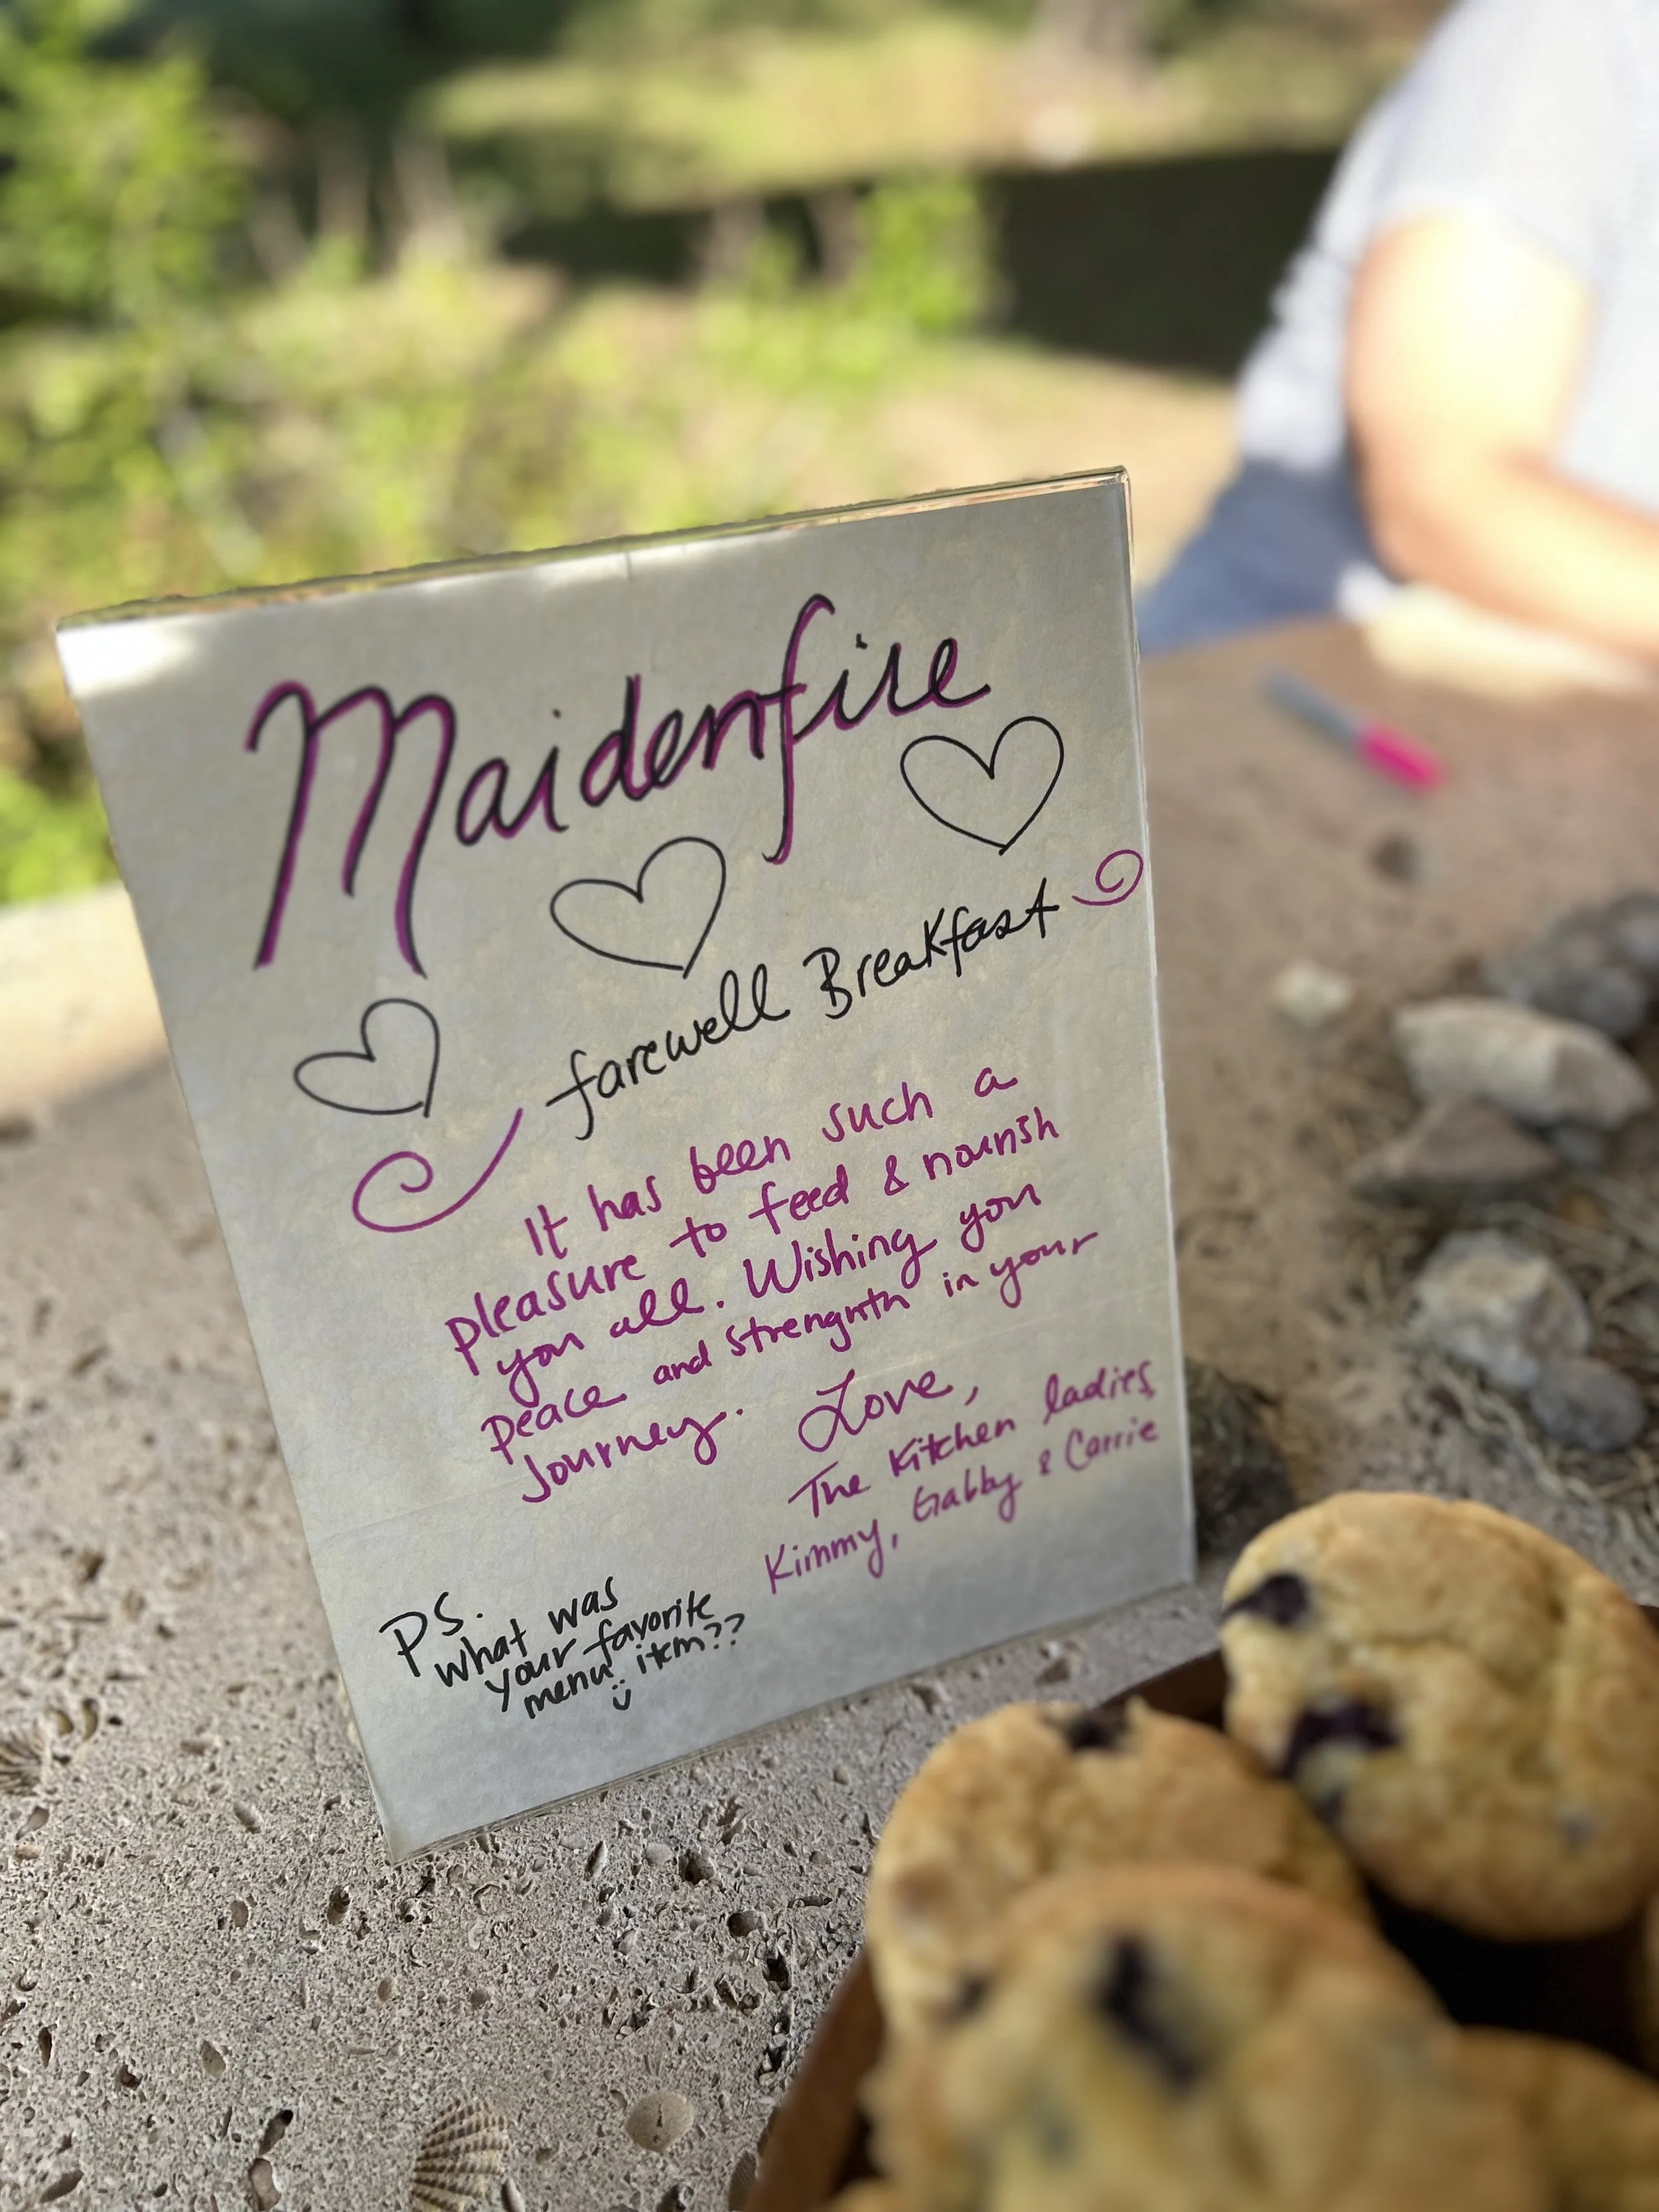 Maidenfire
farewell Breakfast
It has been such a
pleasure to feed & nourish
you all. Wishing you
peace and strengnth in your
Journey. Love,
The Kitchen ladies,
Kimmy, Gabby & Carrie
PS.
What was
your favorite
menu item??